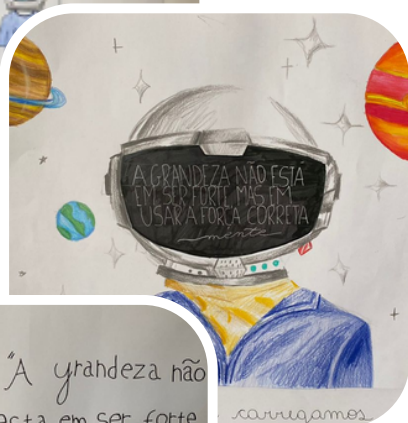 A GRANDEZA NÃO ESTÁ
EM SER FORTE MAS EM
USAR A FORÇA CORRETA
mente
"A grandeza não
em ser forte
carregamos